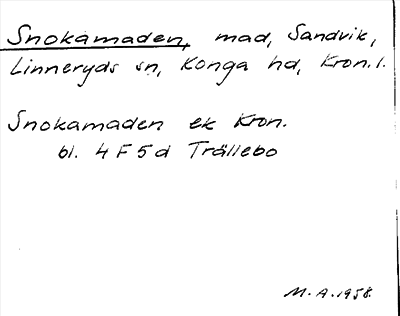 Snokamaden, mad, Sandvik,
Linneryds sn, Konga hd, Kron.l.
Snokamaden ek Kron.
bl. 4F5d Trällebo
M.A.1958.